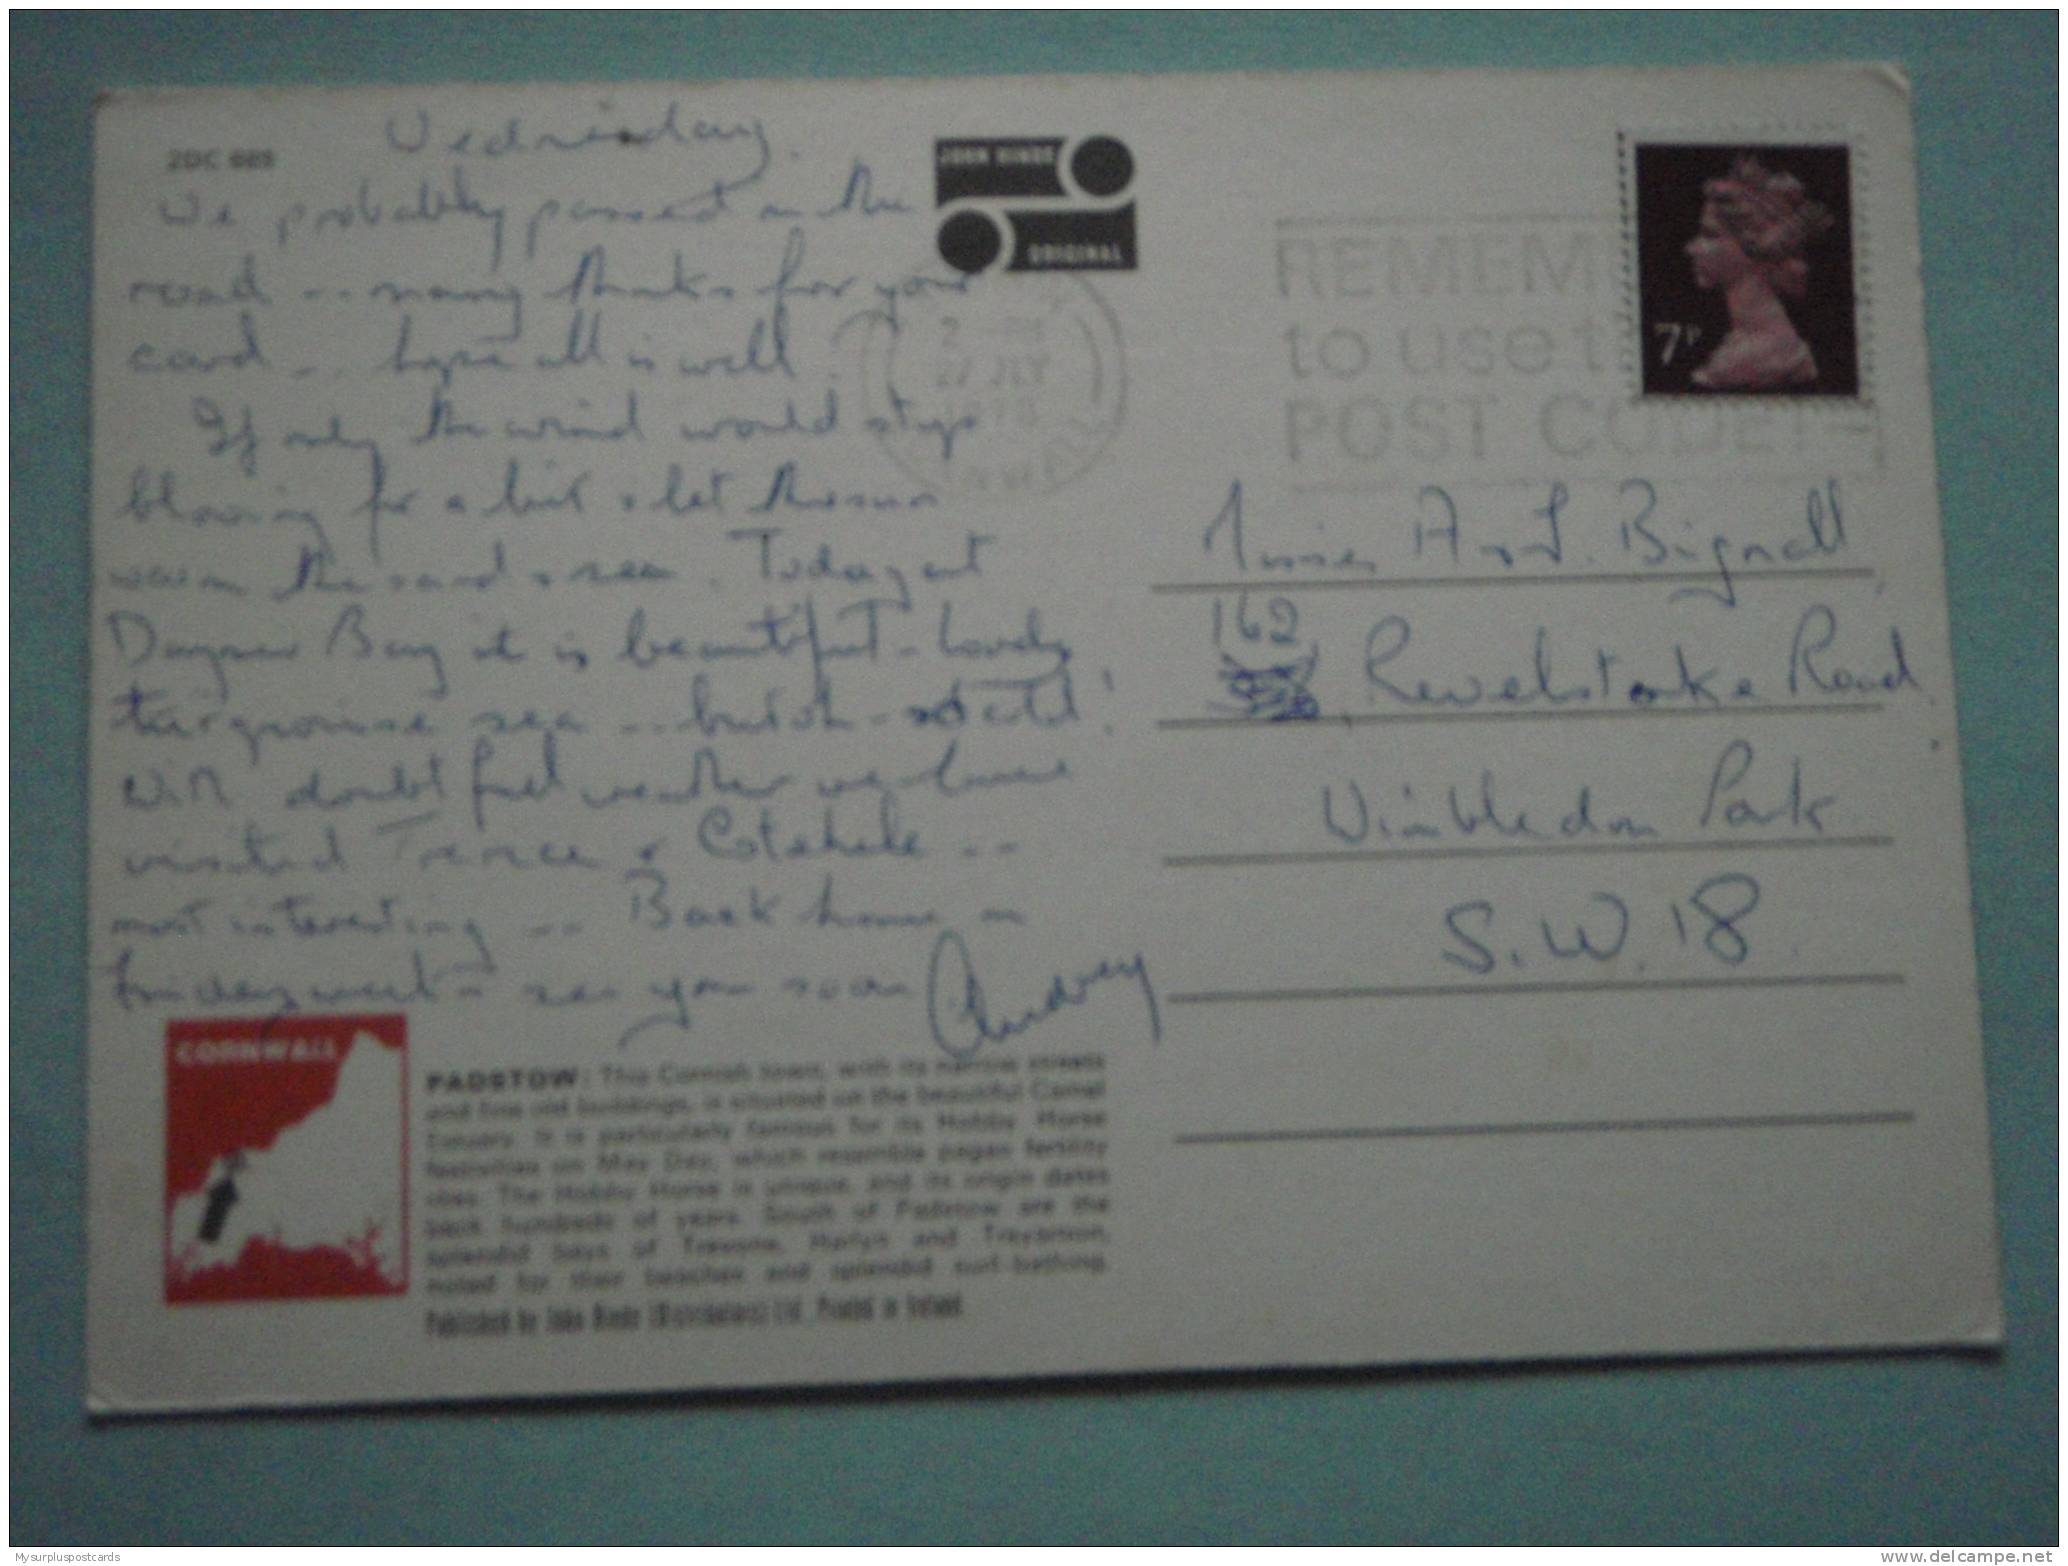 2DC 685
Wednesday.
We probably passed on the
road -- many thanks for your
card -- hope all is well.
If only the wind would stop
blowing for a bit & let the sun
warm the sand & sea. Today at
Daymer Bay it is beautiful - lovely
turquoise sea -- but oh - so cold!
With doubtful weather we have
visited Trerice & Cotehele --
most interesting -- Back home on
Friday next - see you soon Audrey
JOHN HINDE
ORIGINAL
JLY
REMEM
to use t
POST CODE!
7P
Misses A & J. Bignall,
162
Revelstoke Road.
Wimbledon Park
S.W.18.
CORNWALL
PADSTOW: This Cornish town, with its narrow streets
and fine old buildings, is situated on the beautiful Camel
Estuary. It is particularly famous for its Hobby Horse
festivities on May Day, which resemble pagan fertility
rites. The Hobby Horse is unique, and its origin dates
back hundreds of years. South of Padstow are the
splendid bays of Trevone, Harlyn and Treyarnon,
noted for their beaches and splendid surf-bathing.
Published by John Hinde (Distributors) Ltd., Printed in Ireland
Mysurpluspostcards
www.delcampe.net